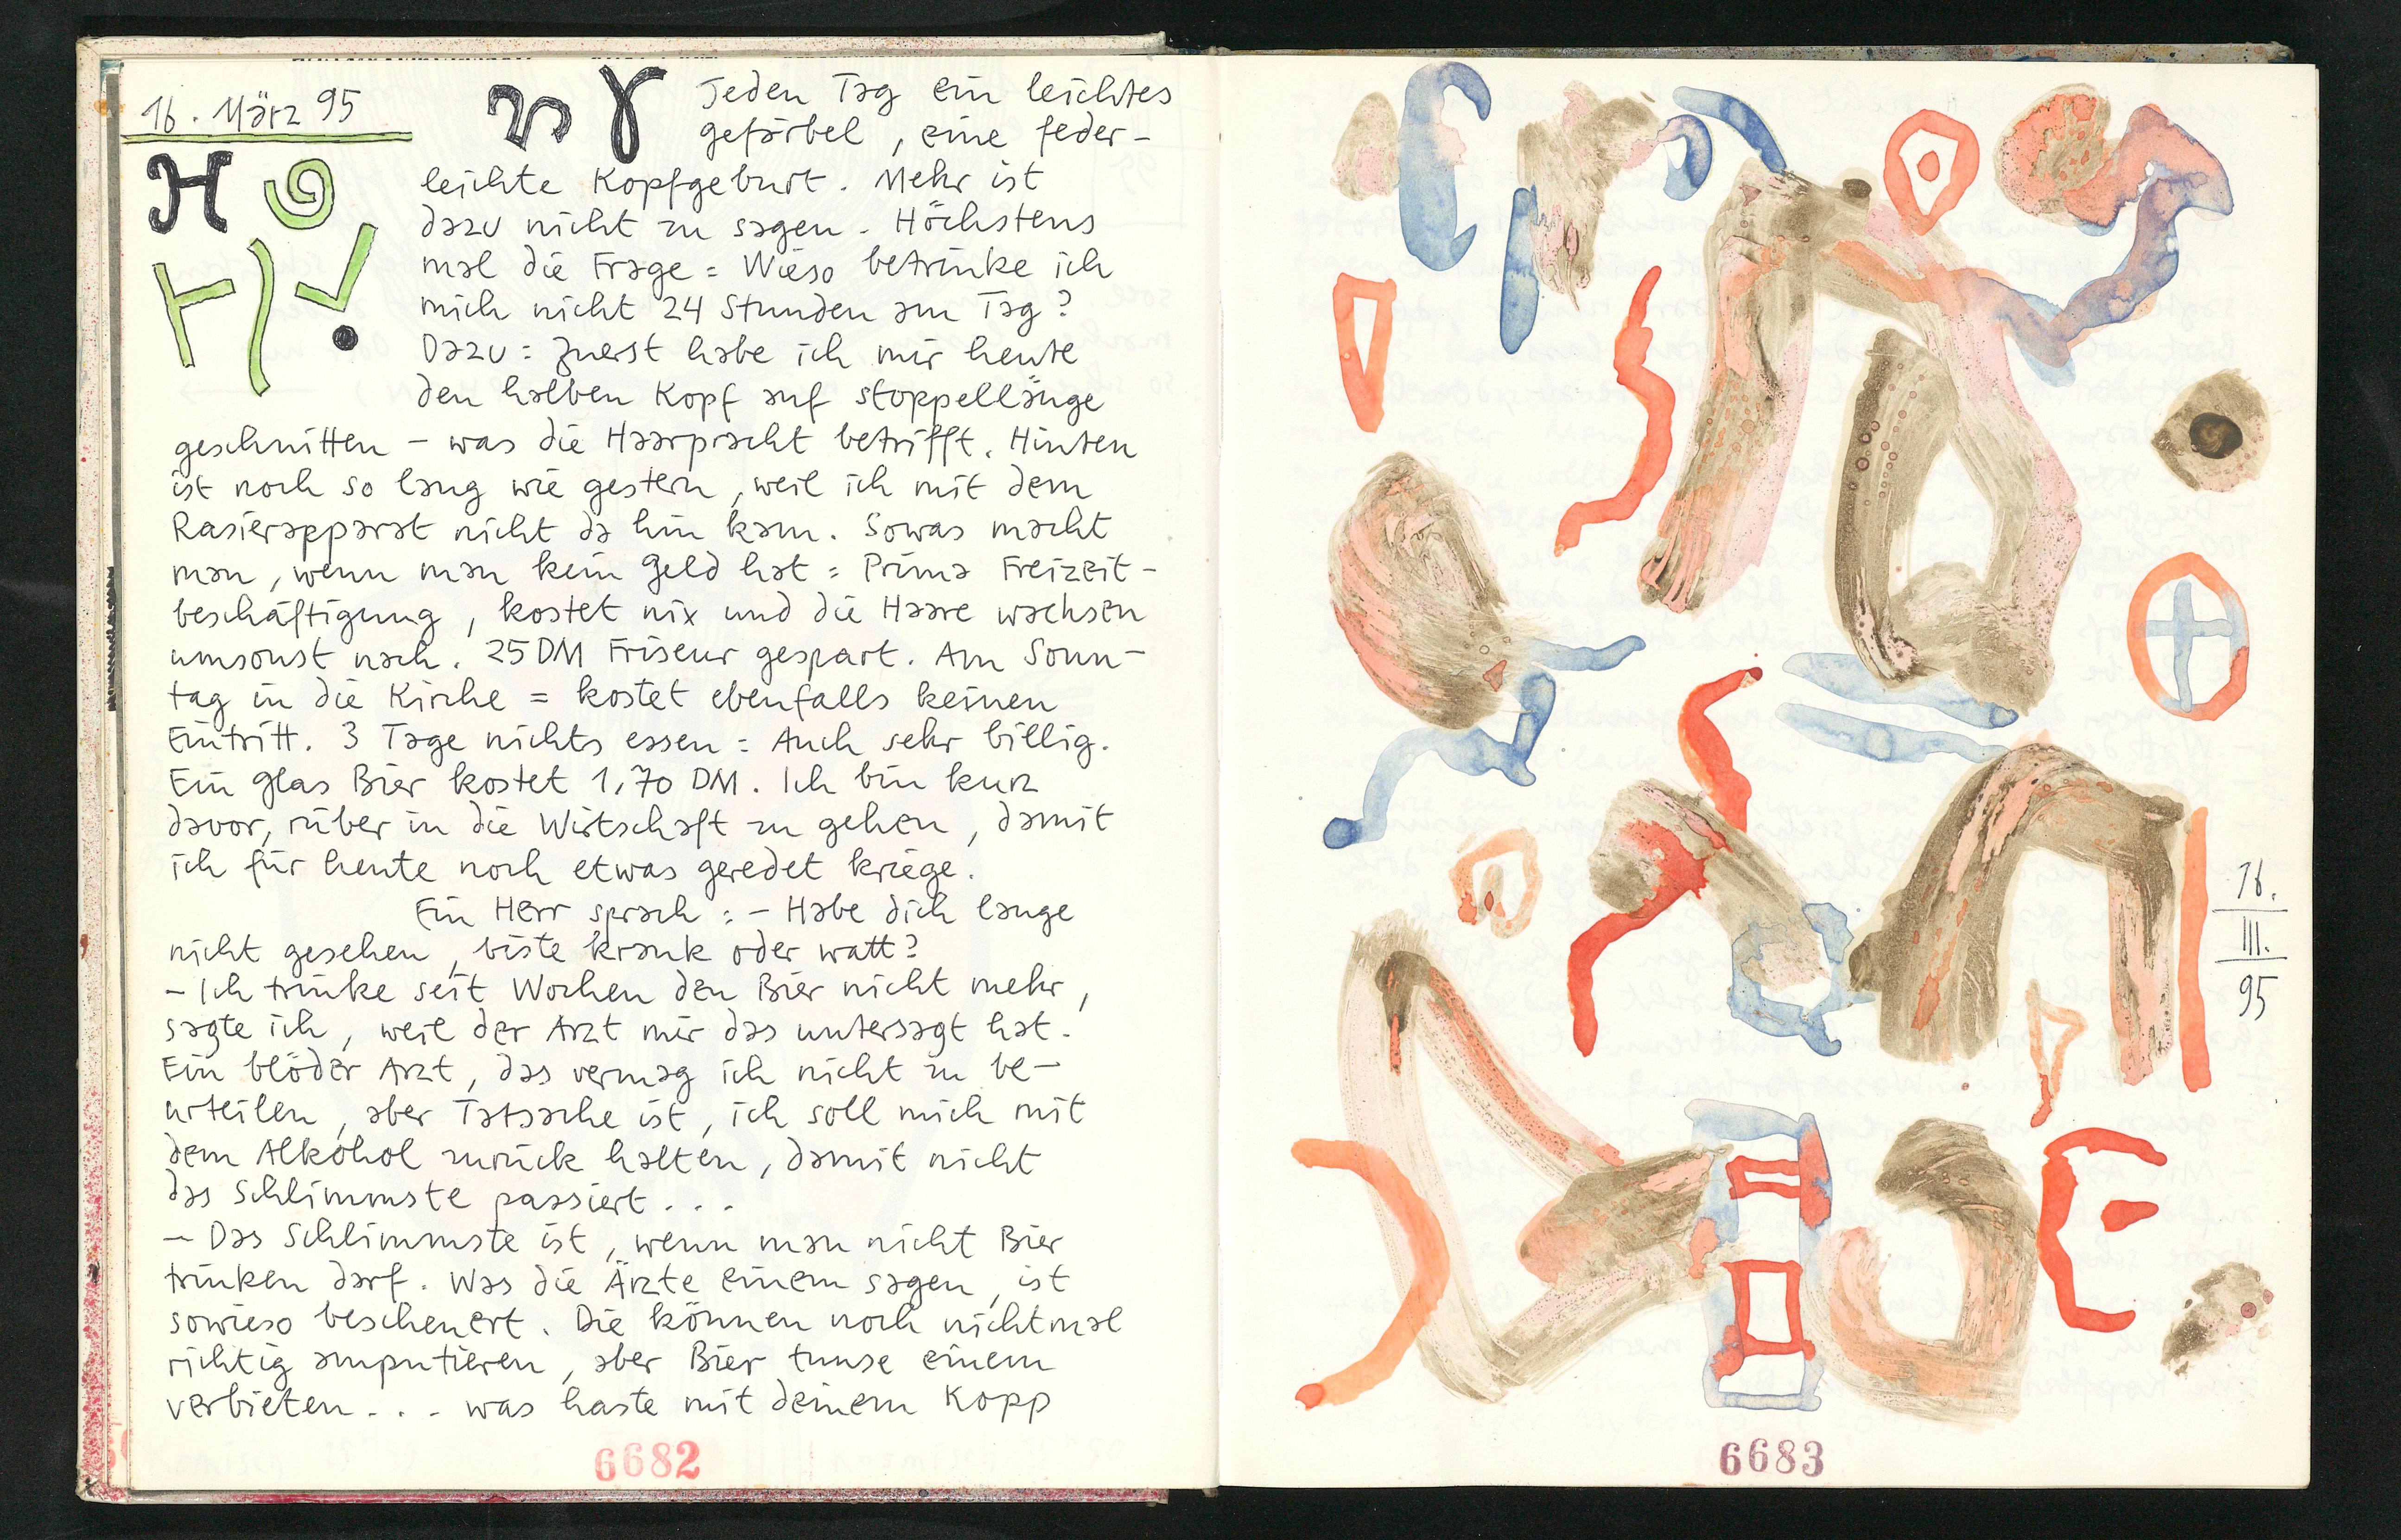 16. März 95
Jeden Tag ein leichtes
gefärbel, eine feder-
leichte Kopfgeburt. Mehr ist
dazu nicht zu sagen. Höchstens
mal die Frage = Wieso betrinke ich
mich nicht 24 Stunden am Tag?
Dazu = Zuerst habe ich mir heute
den halben Kopf auf stoppellänge
geschnitten – was die Haarpracht betrifft. Hinten
ist noch so lang wie gestern, weil ich mit dem
Rasierapparat nicht da hin kam. Sowas macht
man, wenn man kein Geld hat = Prima Freizeit-
beschäftigung, kostet nix und die Haare wachsen
umsonst nach. 25 DM Friseur gespart. Am Sonn-
tag in die Kirche = kostet ebenfalls keinen
Eintritt. 3 Tage nichts essen = Auch sehr billig.
Ein Glas Bier kostet 1,70 DM. Ich bin kurz
davor, rüber in die Wirtschaft zu gehen, damit
ich für heute noch etwas geredet kriege.
Ein Herr sprach = – Habe dich lange
nicht gesehen, biste krank oder watt?
– Ich trinke seit Wochen den Bier nicht mehr,
sagte ich, weil der Arzt mir das untersagt hat.
Ein blöder Arzt, das vermag ich nicht zu be-
urteilen, aber Tatsache ist, ich soll mich mit
dem Alkohol zurück halten, damit nicht
das Schlimmste passiert...
– Das Schlimmste ist, wenn man nicht Bier
trinken darf. Was die Ärzte einem sagen, ist
sowieso bescheuert. Die können noch nichtmal
richtig amputieren, aber Bier tunse einem
verbieten... was haste mit deinem Kopp
6682
16.
III.
95
6683